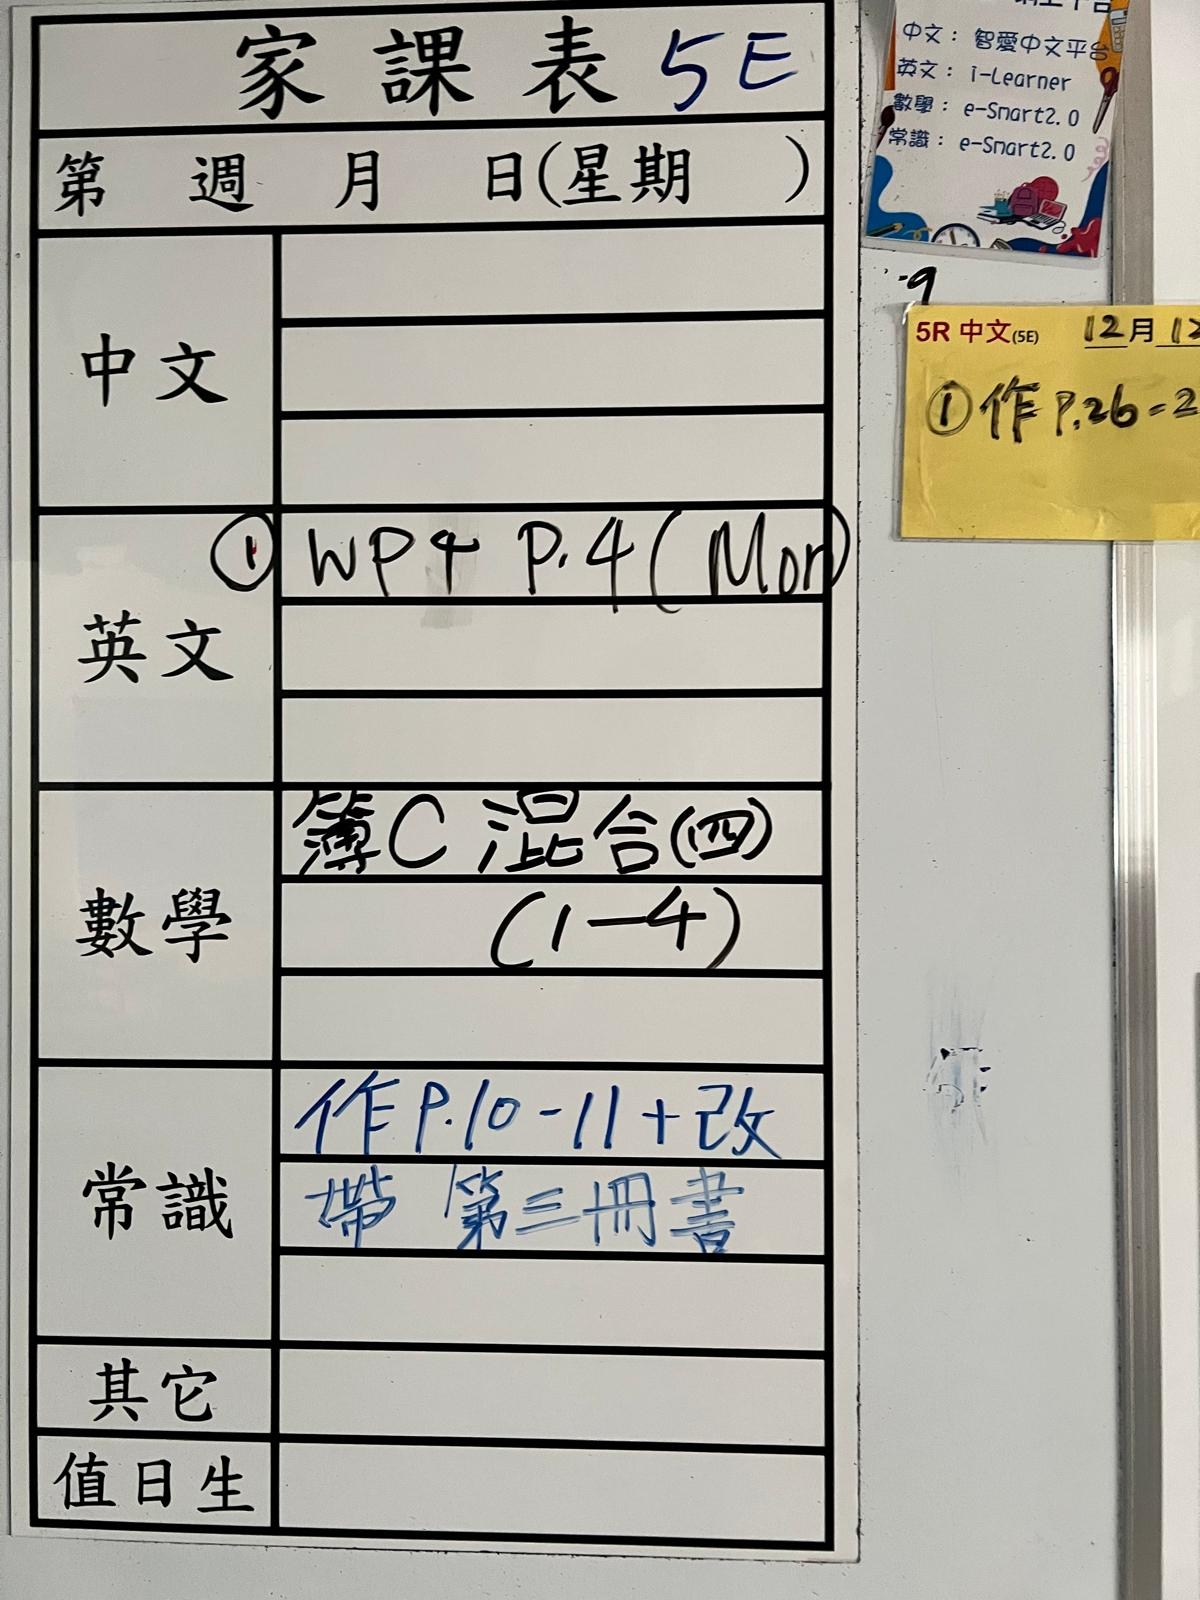 家課表 5E
第 週 月 日(星期 )
中文
英文
① WP4 P.4 (Mon)
數學
簿C 混合(四)
(1-4)
常識
作P.10-11+改
帶 第三冊書
其它
值日生
中文：智愛中文平台
英文：i-Learner
數學：e-Smart2.0
常識：e-Smart2.0
5R 中文(5E) 12月12
①作P.26-2